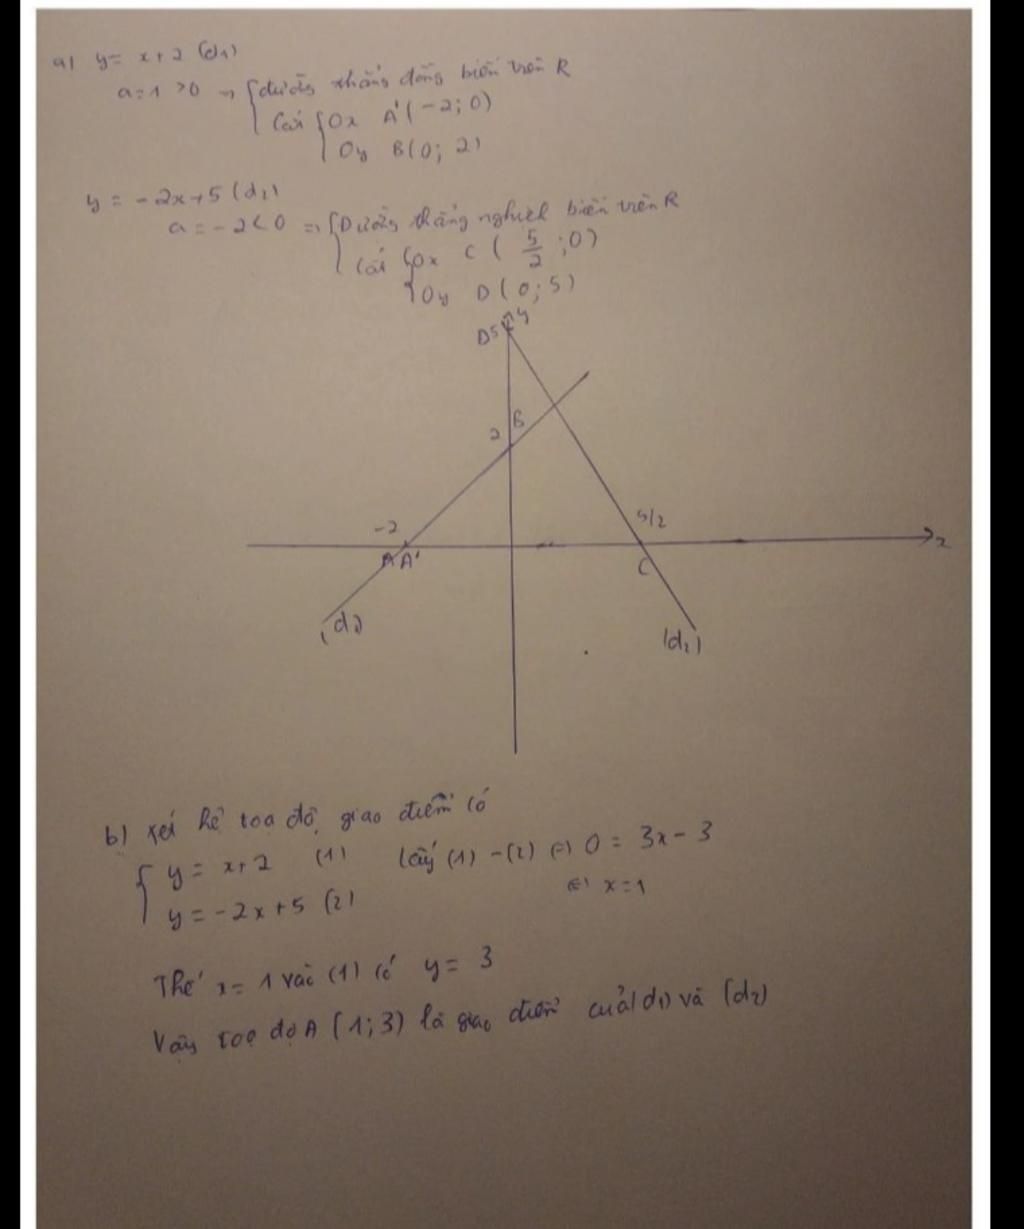 a) y = x + 2 (d₁)
a = 1 > 0 ⇒ { đường thẳng đồng biến trên R
Cắt { Ox A'(-2; 0)
Oy B(0; 2)
y = -2x + 5 (d₂)
a = -2 < 0 ⇒ { Đường thẳng nghịch biến trên R
Cắt { Ox C ( 5/2 ; 0)
Oy D ( 0 ; 5)
D 5 y
2 B
-2 5/2
A A' C x
(d₁) (d₂)
b) Xét hệ toạ độ giao điểm có
{ y = x + 2 (1) lấy (1) - (2) ⇔ 0 = 3x - 3
y = -2x + 5 (2) ⇔ x = 1
Thế x = 1 vào (1) có y = 3
Vậy toạ độ A (1; 3) là giao điểm của (d₁) và (d₂)